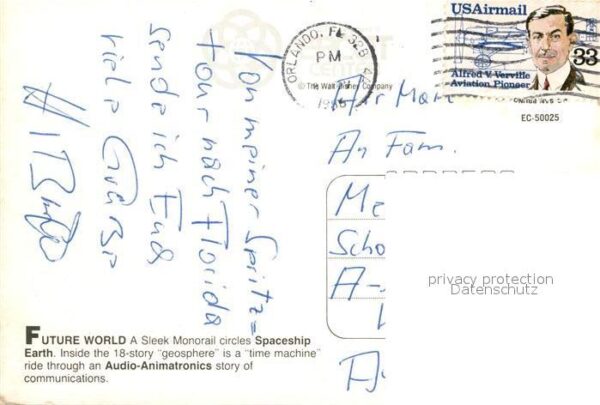 ORLANDO, FL 328
PM
USAirmail
33
Alfred V. Verville
Aviation Pioneer
© The Walt Disney Company
EC-50025
Von meiner Spritz=
tour nach Florida
sende ich Euch
viele Grüße
Air Mail
An Fam.
Me
Scho
A-
privacy protection
Datenschutz
FUTURE WORLD A Sleek Monorail circles Spaceship
Earth. Inside the 18-story "geosphere" is a "time machine"
ride through an Audio-Animatronics story of
communications.